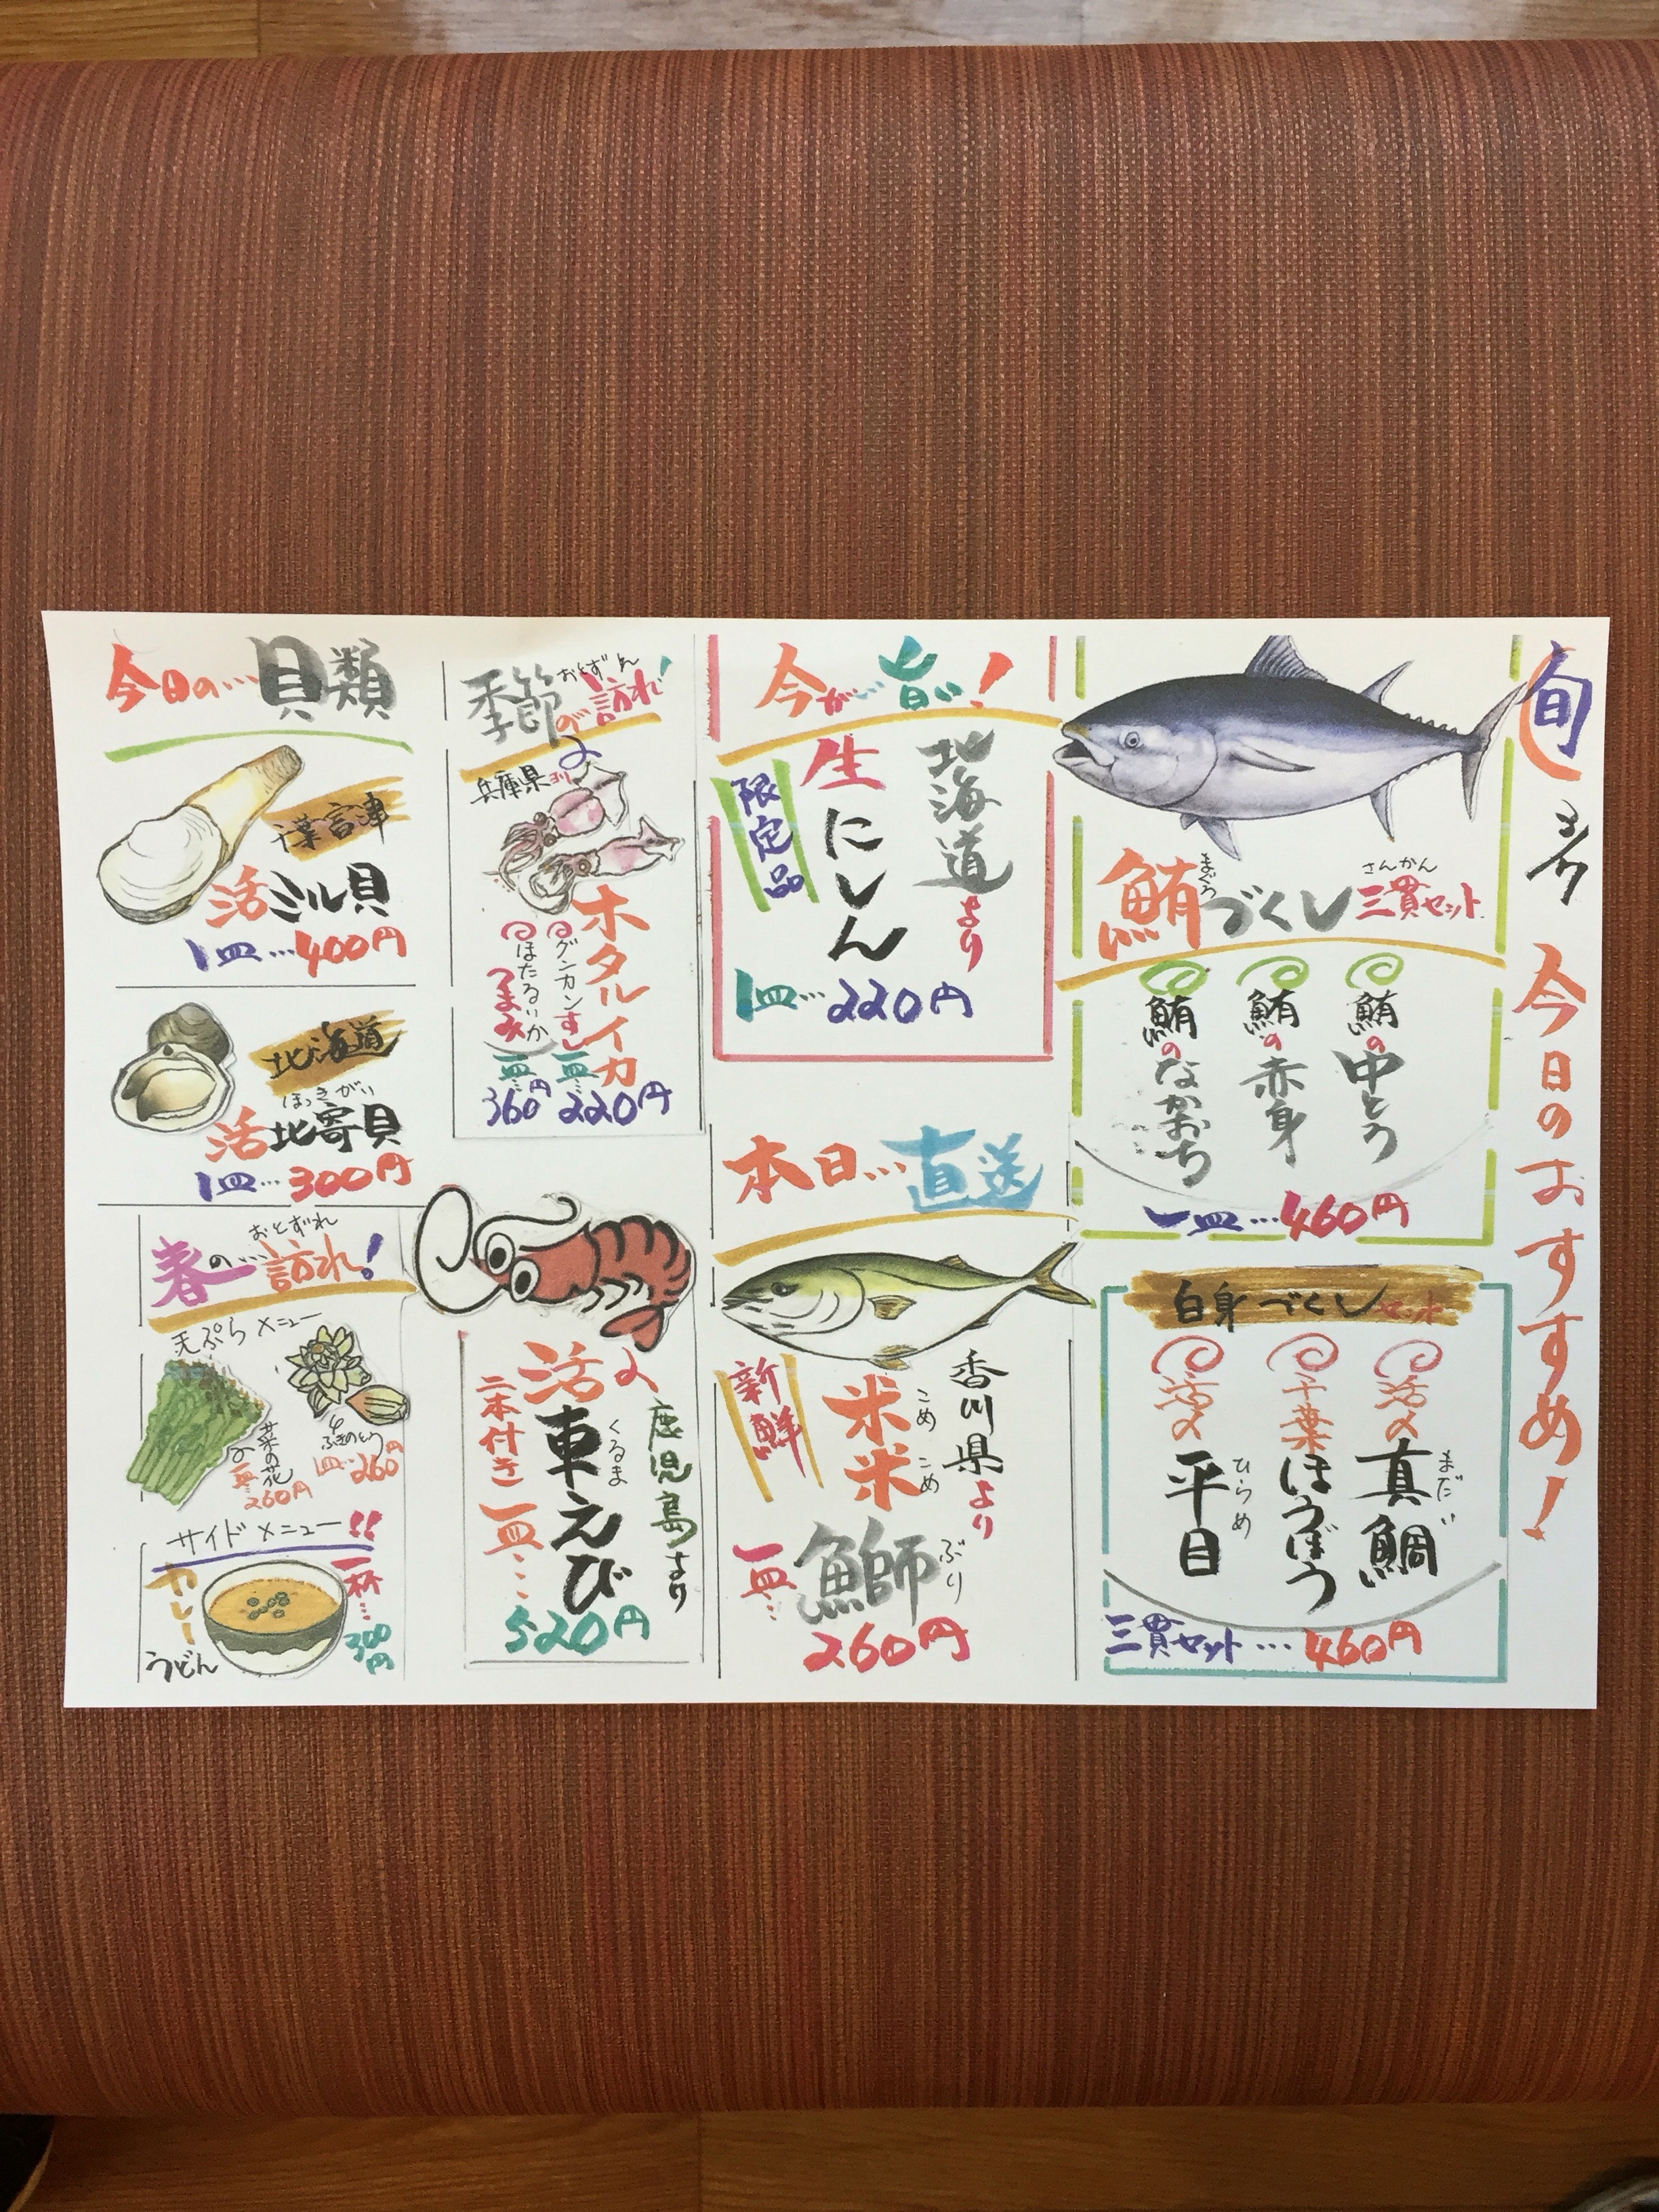 旬
3/7
今日のおすすめ!
鮪づくし三貫セット
まぐろ
さんかん
鮪の中とろ
鮪の赤身
鮪のなかおち
一皿…460円
白身づくしセット
活〆真鯛
まだい
千葉ほうぼう
活〆平目
ひらめ
三貫セット…460円
今が…旨い!
北海道より
生にしん
限定品
1皿…220円
本日…直送
香川県より
新鮮
米米鰤
こめこめ
ぶり
一皿…
260円
季節の訪れ!
おとずれ
兵庫県ヨリ
ホタルイカ
グンカンすし
一皿…
220円
ほたるいか
つまみ
一皿…
360円
鹿児島より
活〆車えび
くるま
二本付き一皿…
520円
今日の…貝類
活ミル貝
1皿…400円
北海道
ほっきがい
活北寄貝
1皿…300円
春の…訪れ!
おとずれ
天ぷらメニュー
ふきのとう
1皿…260円
菜の花
一皿…
260円
サイドメニュー!!
カレー
うどん
一杯…
300円